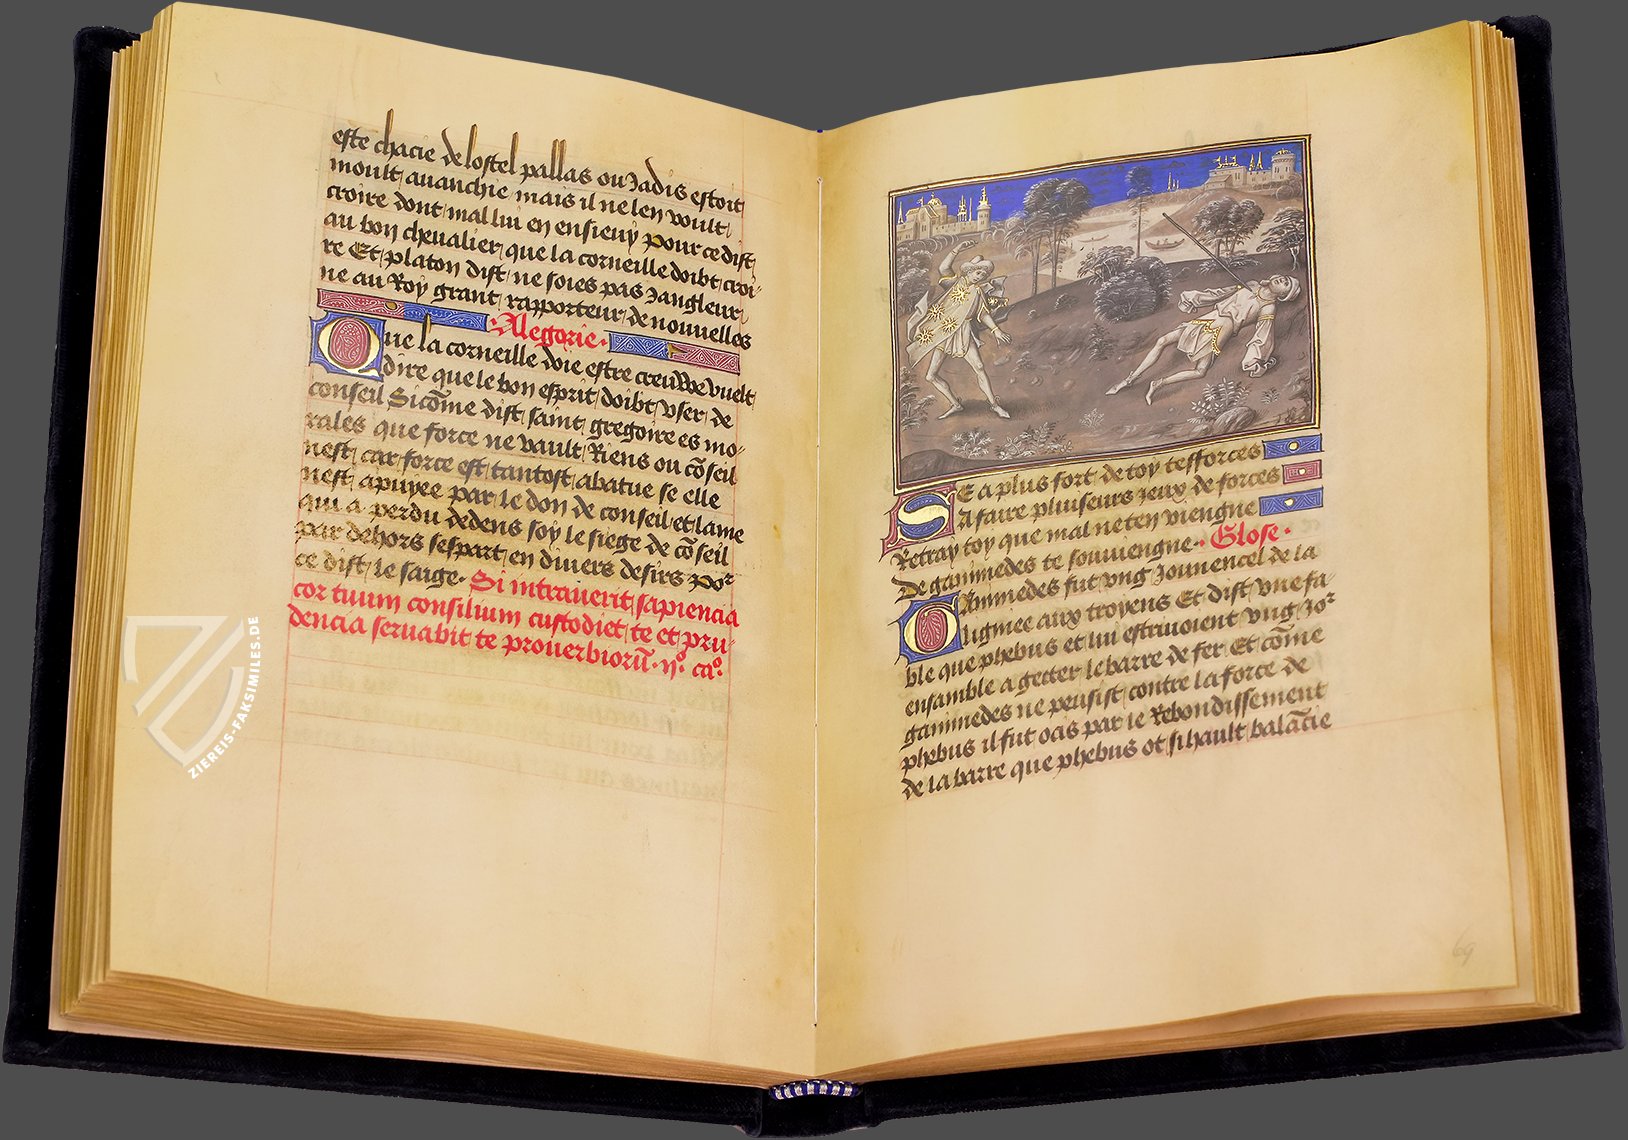 este chacie de lostel pallas ou Jadis estoit
moult auancnie mais il ne len voult
croire dont mal lui en ensieuy pour ce dist
au bon cheualier que la corneille doibt croi-
re Et platon dist ne soies pas Jangleur
ne au Roy grant rapporteur de nouuelles
Alegorie.
Que la corneille doie estre creuwe vuelt
dire que le bon esprit doibt vser de
conseil Sicōme dist saint gregoire es mo-
rales que force ne vault Riens ou cōseil
nest, car force est tantost abatue se elle
nest apuyee par le don de conseil et lame
qui a perdu dedens soy le siege de cōseil
par dehors sespart en diuers desirs por
ce dist le saige. Si intrauerit sapiencia
cor tuum consilium custodiet te et pru-
dencia seruabit te prouerbiorū. ijo. cao.
SE a plus fort de toy tefforces
A faire pluiseurs Jeux de forces
Retray toy que mal ne ten viengne
De ganimedes te souuiengne. Glose.
Ganimedes fut vng Jouuencel de la
lignee aux troyens Et dist vne fa-
ble que phebus et lui estriuoient vng Jor
ensamble a getter le barre de fer Et cōme
ganimedes ne peusist contre la force de
phebus il fut ocis par le Rebondissement
de la barre que phebus ot si hault balācie
69
ZIEREIS-FAKSIMILES.DE